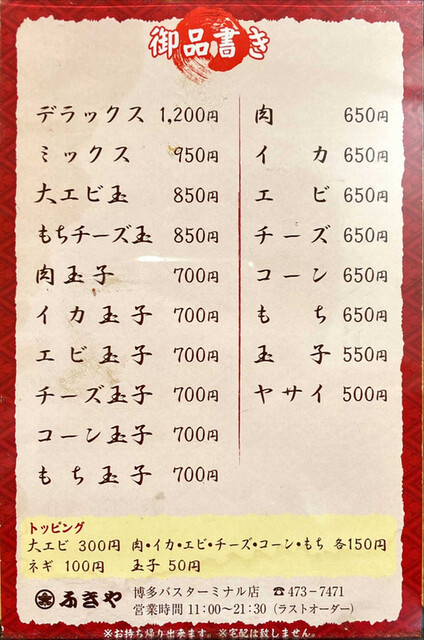 御品書き
デラックス 1,200円
ミックス 950円
大エビ玉 850円
もちチーズ玉 850円
肉玉子 700円
イカ玉子 700円
エビ玉子 700円
チーズ玉子 700円
コーン玉子 700円
もち玉子 700円
肉 650円
イカ 650円
エビ 650円
チーズ 650円
コーン 650円
もち 650円
玉子 550円
ヤサイ 500円
トッピング
大エビ 300円 肉・イカ・エビ・チーズ・コーン・もち 各150円
ネギ 100円 玉子 50円
ふきや 博多バスターミナル店 ☎473-7471
営業時間 11:00〜21:30 (ラストオーダー)
※お持ち帰り出来ます。※宅配は致しません。